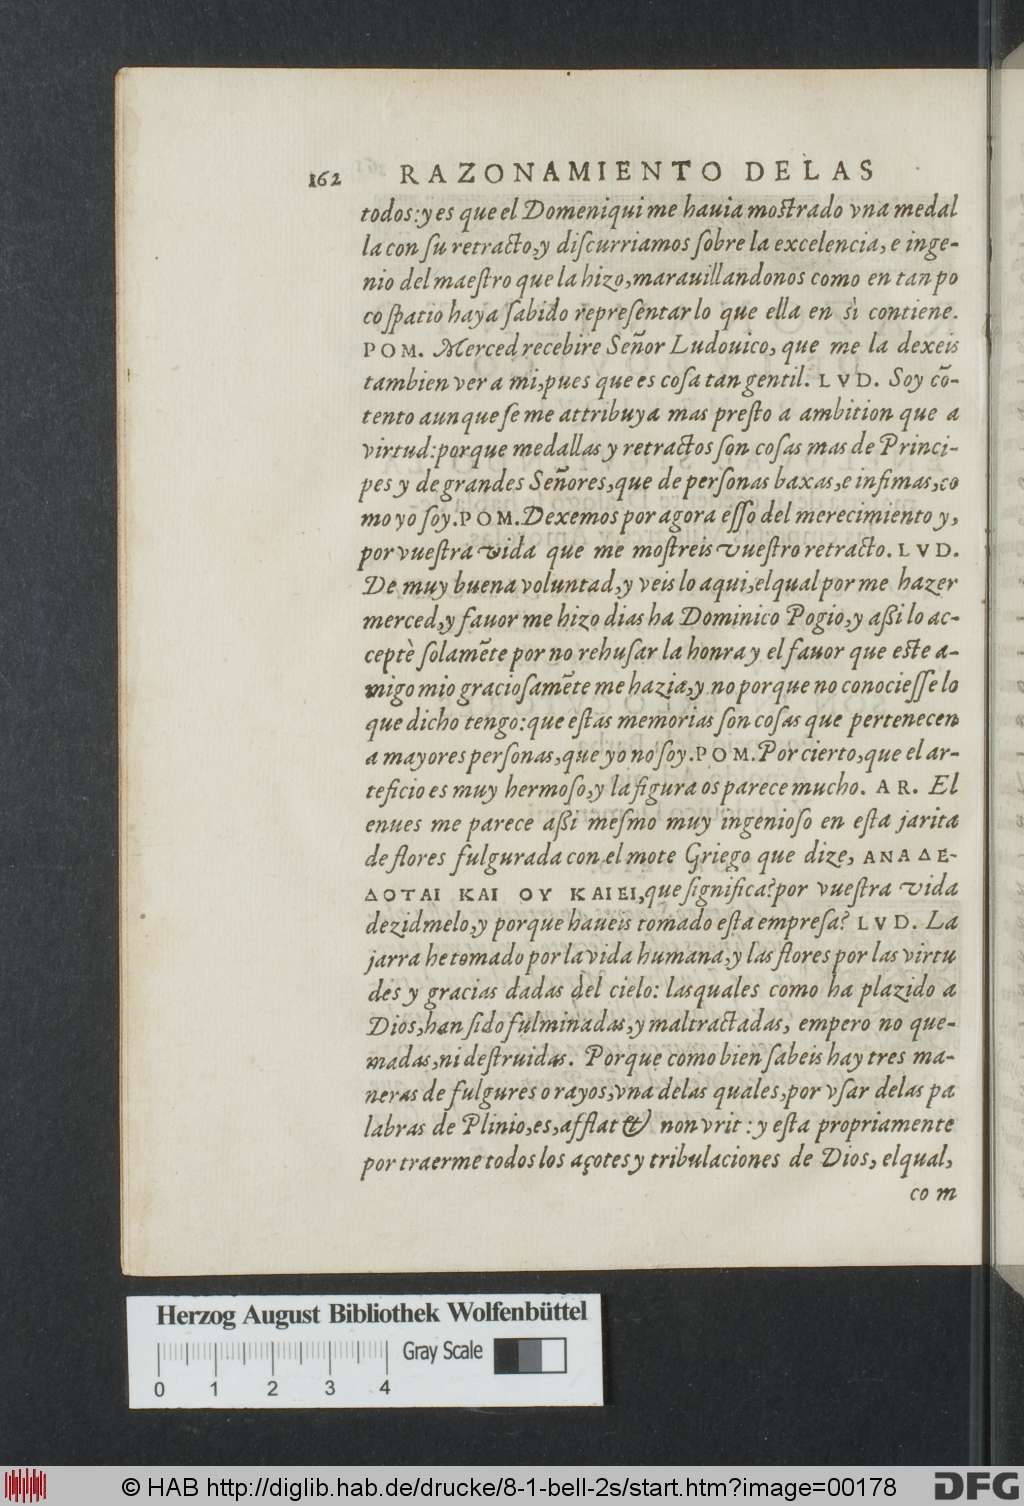 162 RAZONAMIENTO DELAS
todos: y es que el Domeniqui me hauia moſtrado vna medal
la con ſu retracto, y diſcurriamos ſobre la excelencia, e inge-
nio del maeſtro que la hizo, marauillandonos como en tan po
co ſpatio haya ſabido repreſentarlo que ella en sì contiene.
POM. Merced recebire Señor Ludouico, que me la dexeis
tambien ver a mi, pues que es coſa tan gentil. LVD. Soy cō-
tento aunque ſe me attribuya mas preſto a ambition que a
virtud: porque medallas y retractos ſon coſas mas de Princi-
pes y de grandes Señores, que de perſonas baxas, e infimas, co
mo yo ſoy. POM. Dexemos por agora eſſo del merecimiento y,
por vueſtra vida que me moſtreis vueſtro retracto. LVD.
De muy buena voluntad, y veis lo aqui, elqual por me hazer
merced, y fauor me hizo dias ha Dominico Pogio, y aßi lo ac-
ceptè ſolamēte por no rehuſar la honra y el fauor que eſte a-
migo mio gracioſamēte me hazia, y no porque no conocieſſe lo
que dicho tengo: que eſtas memorias ſon coſas que pertenecen
a mayores perſonas, que yo no ſoy. POM. Por cierto, que el ar-
teficio es muy hermoſo, y la figura os parece mucho. AR. El
enues me parece aßi meſmo muy ingenioſo en eſta jarita
de flores fulgurada con el mote Griego que dize, ΑΝΑΔΕ-
ΔΟΤΑΙ ΚΑΙ ΟΥ ΚΑΙΕΙ, que ſignifica? por vueſtra vida
dezidmelo, y porque haueis tomado eſta empreſa? LVD. La
jarra he tomado por la vida humana, y las flores por las virtu
des y gracias dadas del cielo: lasquales como ha plazido a
Dios, han ſido fulminadas, y maltractadas, empero no que-
madas, ni deſtruidas. Porque como bien ſabeis hay tres ma-
neras de fulgures o rayos, vna delas quales, por vſar delas pa
labras de Plinio, es, afflat & non vrit : y eſta propriamente
por traerme todos los açotes y tribulaciones de Dios, elqual,
co m
Herzog August Bibliothek Wolfenbüttel
Gray Scale
0 1 2 3 4
© HAB http://diglib.hab.de/drucke/8-1-bell-2s/start.htm?image=00178 DFG